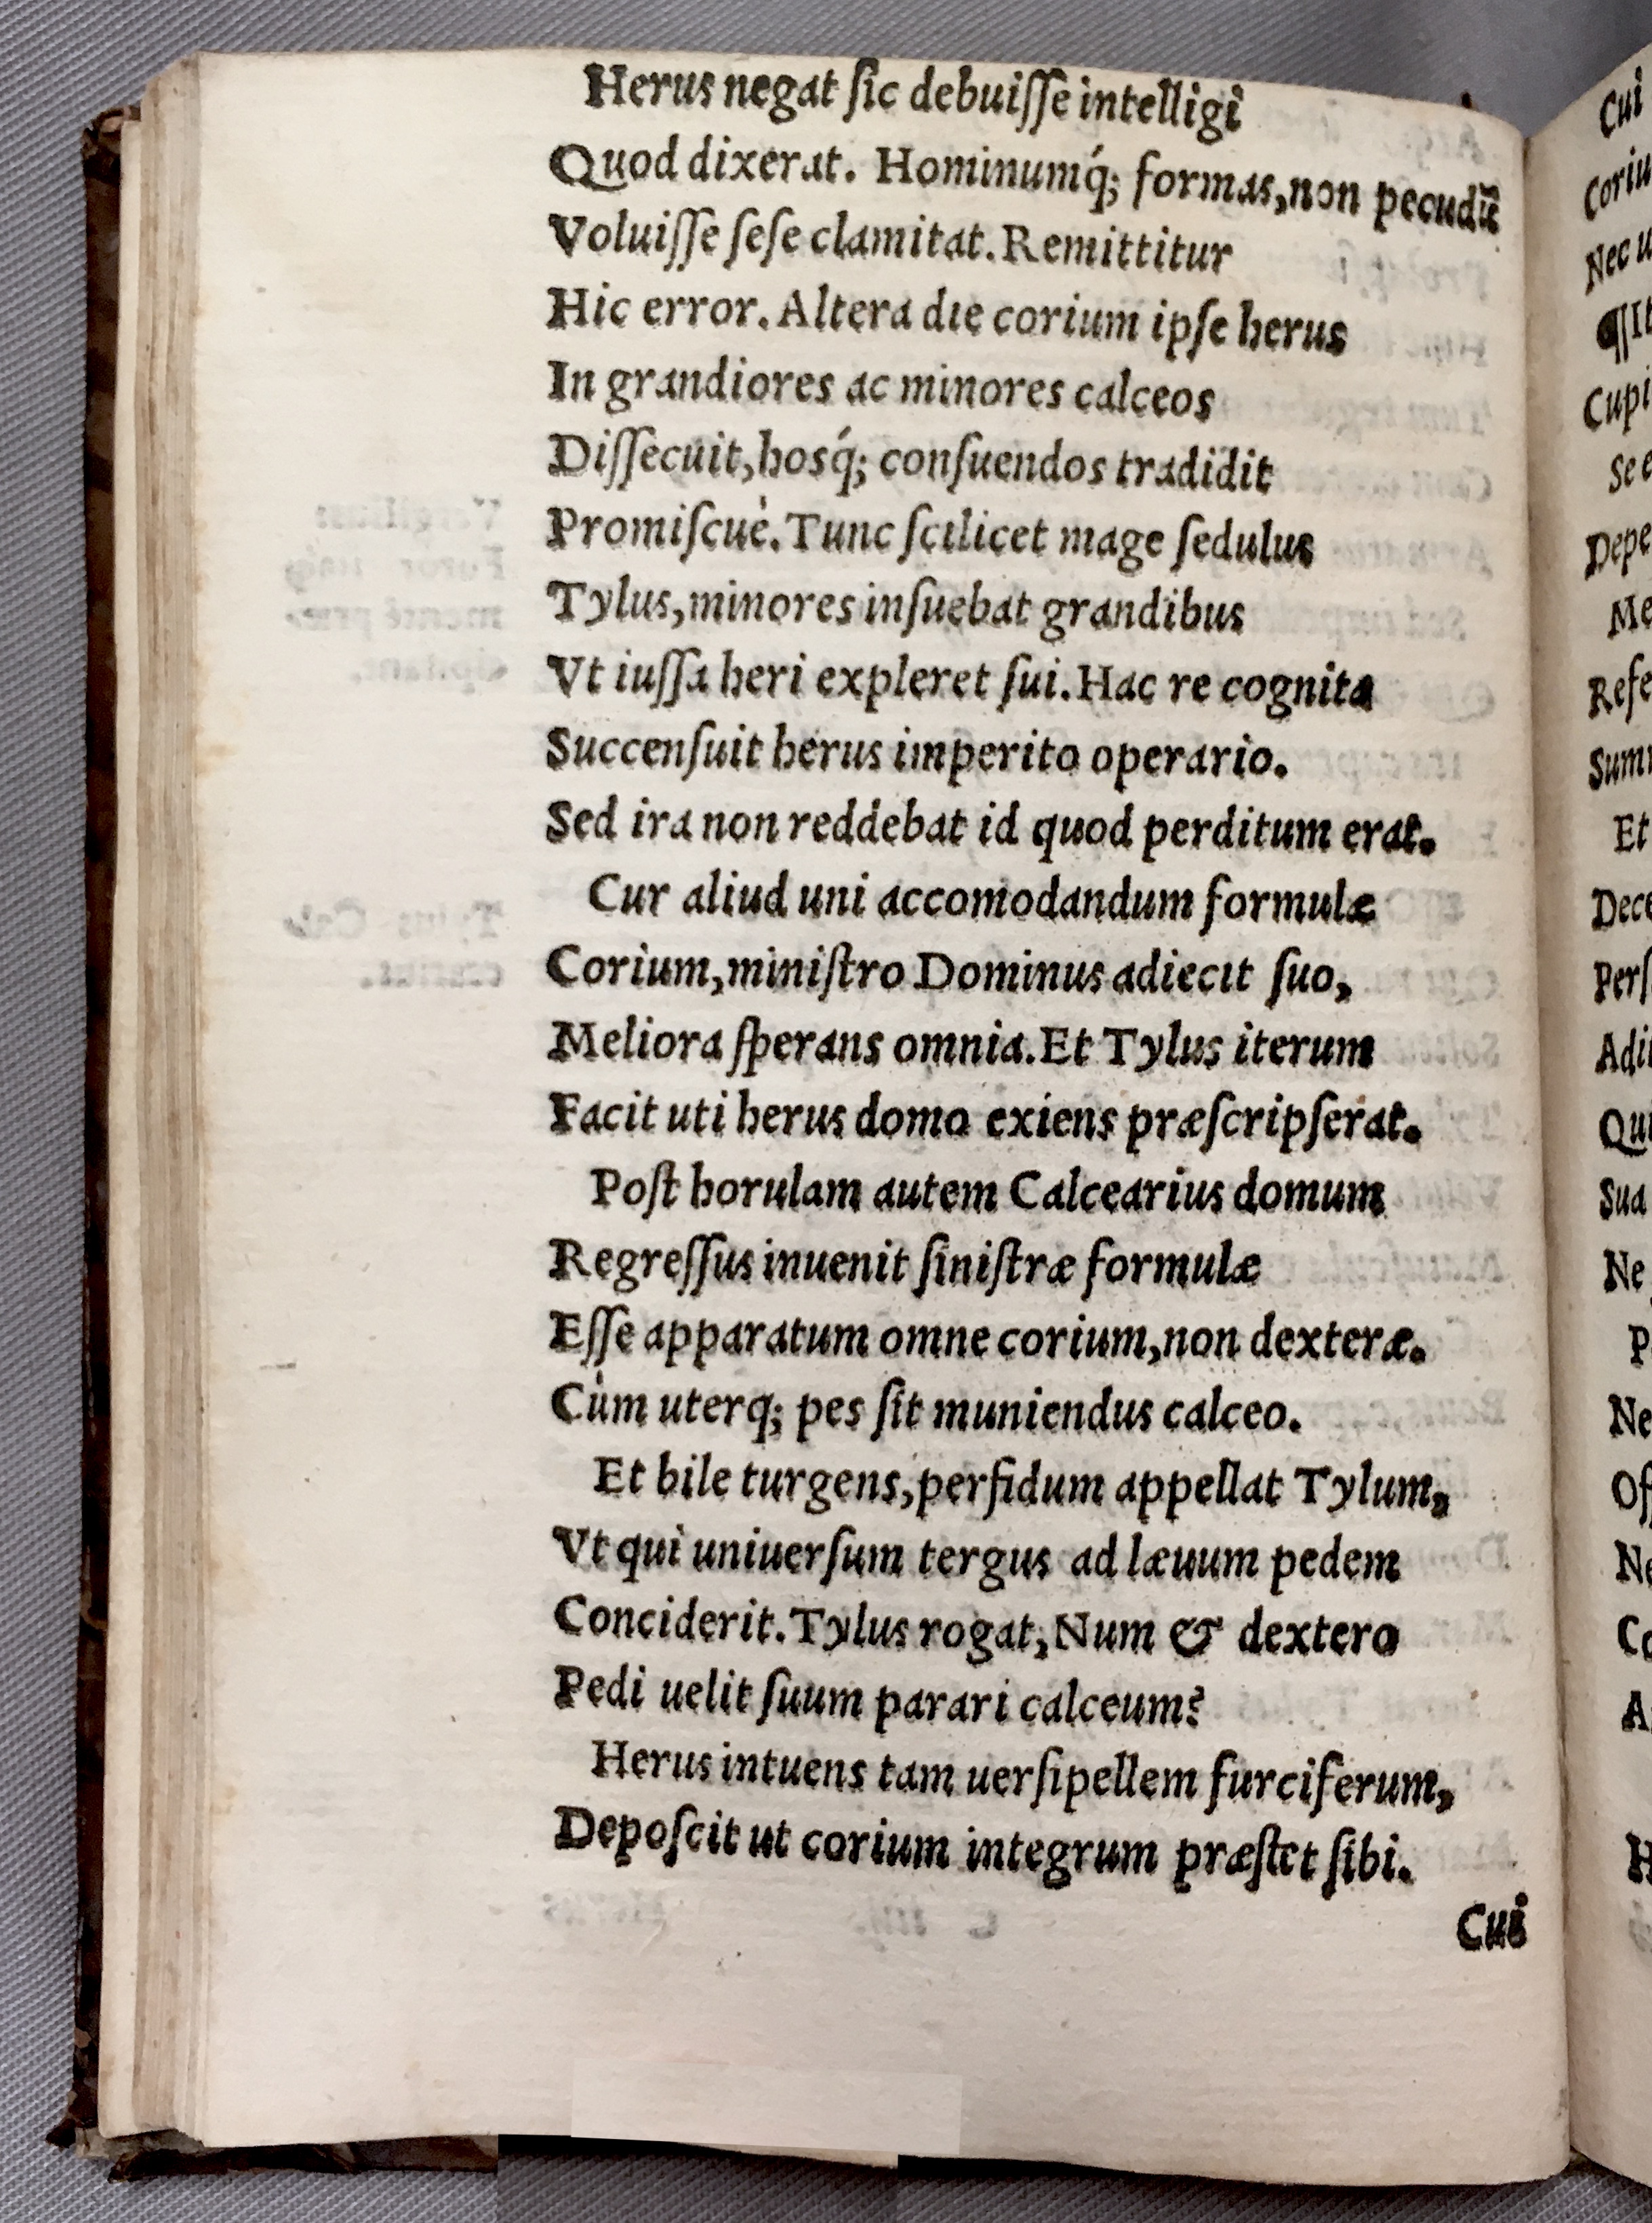 Herus negat ſic debuiſſe intelligi
Quod dixerat. Hominumq́; formas, non pecudũ
Voluiſſe ſeſe clamitat. Remittitur
Hic error. Altera die corium ipſe herus
In grandiores ac minores calceos
Diſſecuit, hosq́; conſuendos tradidit
Promiſcuè. Tunc ſcilicet mage ſedulus
Tylus, minores inſuebat grandibus
Vt iuſſa heri expleret ſui. Hac re cognita
Succenſuit herus imperito operario.
Sed ira non reddebat id quod perditum erat.
Cur aliud uni accomodandum formulæ
Corium, miniſtro Dominus adiecit ſuo,
Meliora ſperans omnia. Et Tylus iterum
Facit uti herus domo exiens præſcripſerat.
Poſt horulam autem Calcearius domum
Regreſſus inuenit ſiniſtræ formulæ
Eſſe apparatum omne corium, non dexteræ.
Cùm uterq; pes ſit muniendus calceo.
Et bile turgens, perfidum appellat Tylum,
Vt qui uniuerſum tergus ad læuum pedem
Conciderit. Tylus rogat, Num & dextero
Pedi uelit ſuum parari calceum?
Herus intuens tam uerſipellem furciferum,
Depoſcit ut corium integrum præſtet ſibi.
Cui
Cui
Nec u
¶It
Cupi
Se e
Depe
Me
Refe
Et
Perſ
Qui
Sua
Ne
P
Ne
Of
Ne
Co
A
H